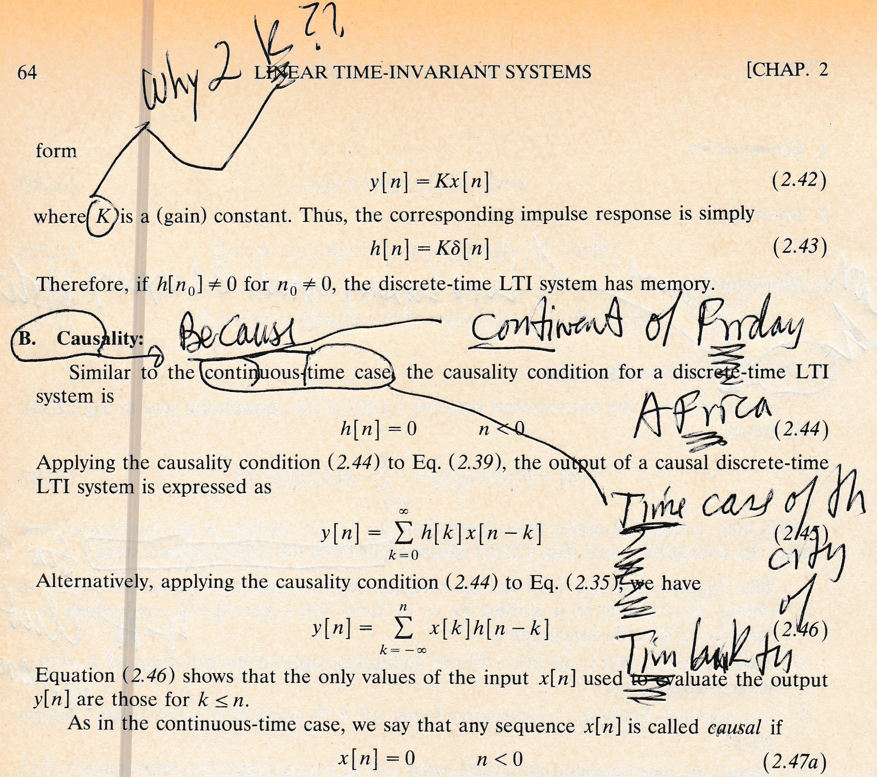 Why 2 K ??
64 LINEAR TIME-INVARIANT SYSTEMS [CHAP. 2
form
y[n] = Kx[n] (2.42)
where K is a (gain) constant. Thus, the corresponding impulse response is simply
h[n] = Kδ[n] (2.43)
Therefore, if h[n₀] ≠ 0 for n₀ ≠ 0, the discrete-time LTI system has memory.
B. Causality: Be Caus continent of
Similar to the continuous-time case, the causality condition for a discrete-time LTI
system is
Africa
h[n] = 0 n < 0 (2.44)
Applying the causality condition (2.44) to Eq. (2.39), the output of a causal discrete-time
LTI system is expressed as
Time case of th
y[n] = ∑_{k=0}^{∞} h[k]x[n − k] (2.45)
city
Alternatively, applying the causality condition (2.44) to Eq. (2.35), we have
of
y[n] = ∑_{k=−∞}^{n} x[k]h[n − k] (2.46)
Tim buk tu
Equation (2.46) shows that the only values of the input x[n] used to evaluate the output
y[n] are those for k ≤ n.
As in the continuous-time case, we say that any sequence x[n] is called causal if
x[n] = 0 n < 0 (2.47a)